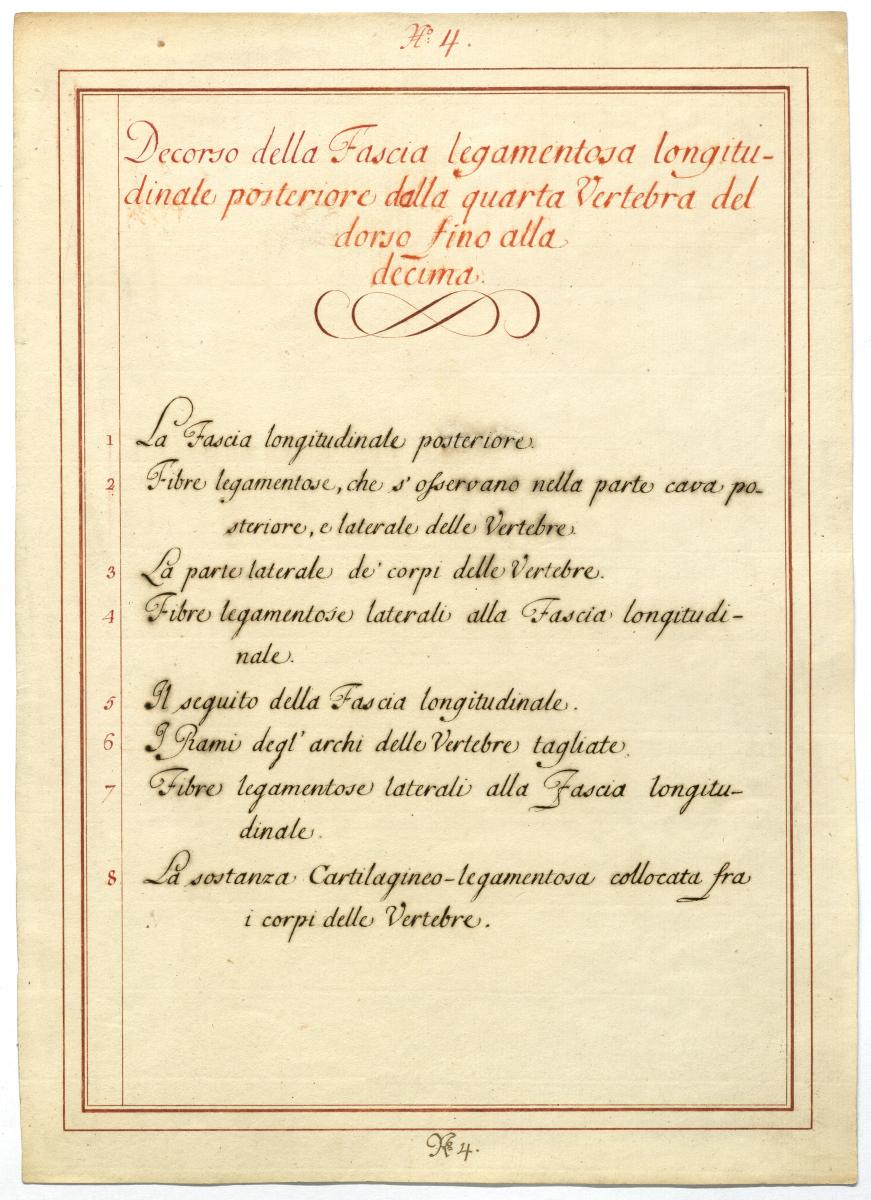 No: 4.
Decorso della Fascia legamentosa longitu-
dinale posteriore dalla quarta Vertebra del
dorso fino alla
decima.
1 La Fascia longitudinale posteriore.
2 Fibre legamentose, che s'osservano nella parte cava po-
steriore, e laterale delle Vertebre.
3 La parte laterale de' corpi delle Vertebre.
4 Fibre legamentose laterali alla Fascia longitudi-
nale.
5 Il seguito della Fascia longitudinale.
6 I Rami degl'archi delle Vertebre tagliate.
7 Fibre legamentose laterali alla Fascia longitu-
dinale.
8 La sostanza Cartilagineo-legamentosa collocata fra
i corpi delle Vertebre.
No 4.